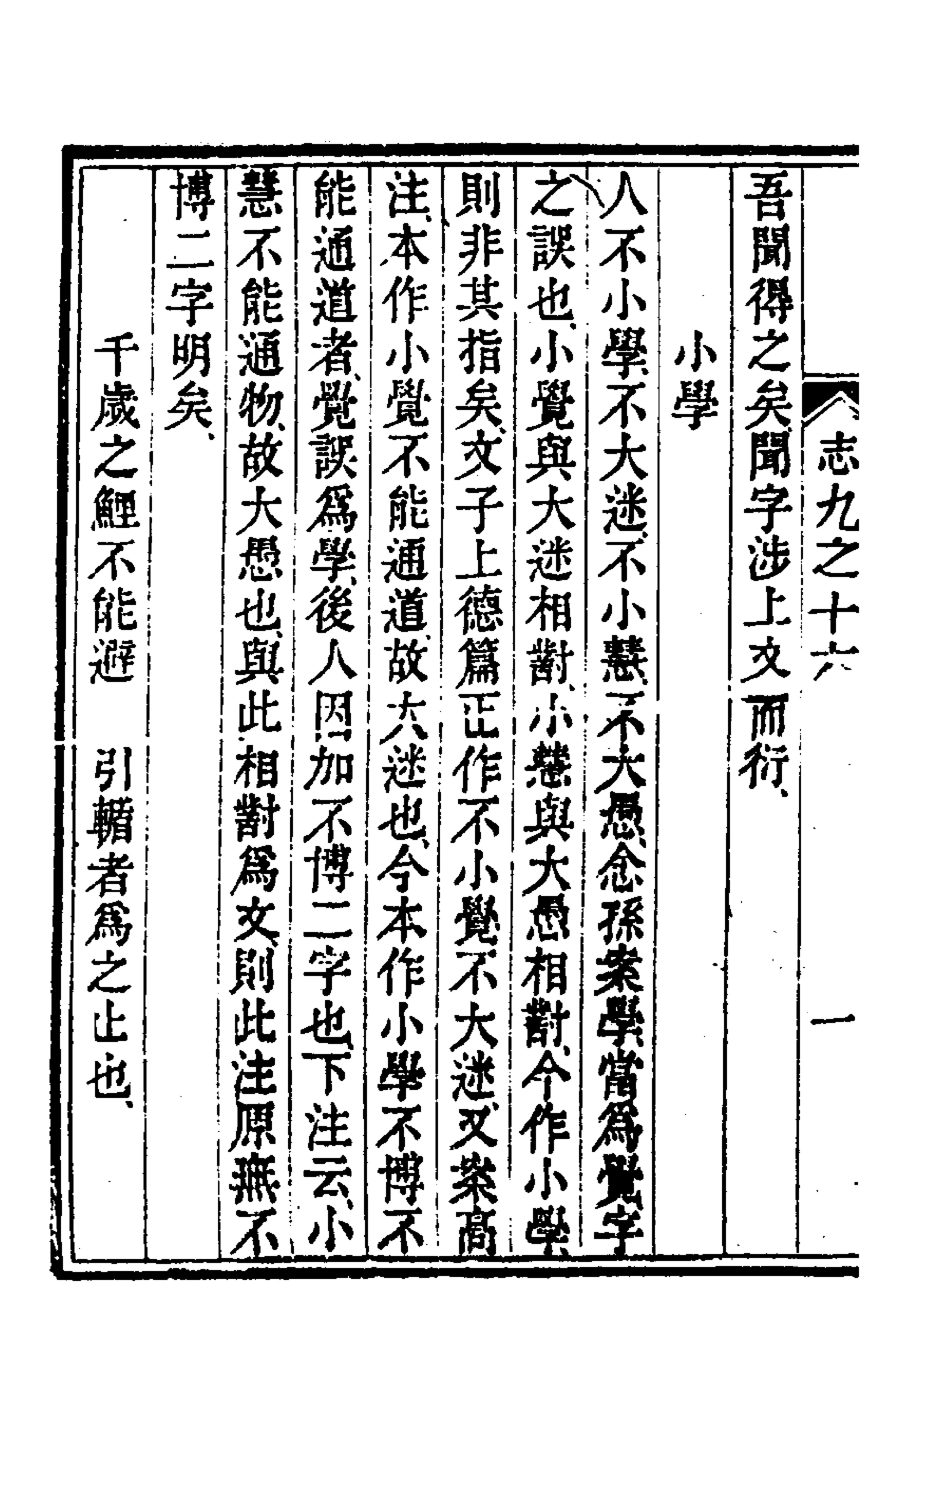 志九之十六 一
吾聞得之矣聞字涉上文而衍、
小學
人不小學、不大迷、不小慧、不大愚、念孫案學、當爲覺字
之誤也、小覺與大迷相對、小慧與大愚相對、今作小學、
則非其指矣、文子上德篇正作不小覺、不大迷、又案高
注、本作小覺不能通道、故大迷也、今本作小學不博不
能通道者、覺誤爲學、後人因加不博二字也、下注云、小
慧不能通物、故大愚也、與此相對爲文、則此注原無不
博二字明矣、
千歲之鯉不能避　引輴者爲之止也、